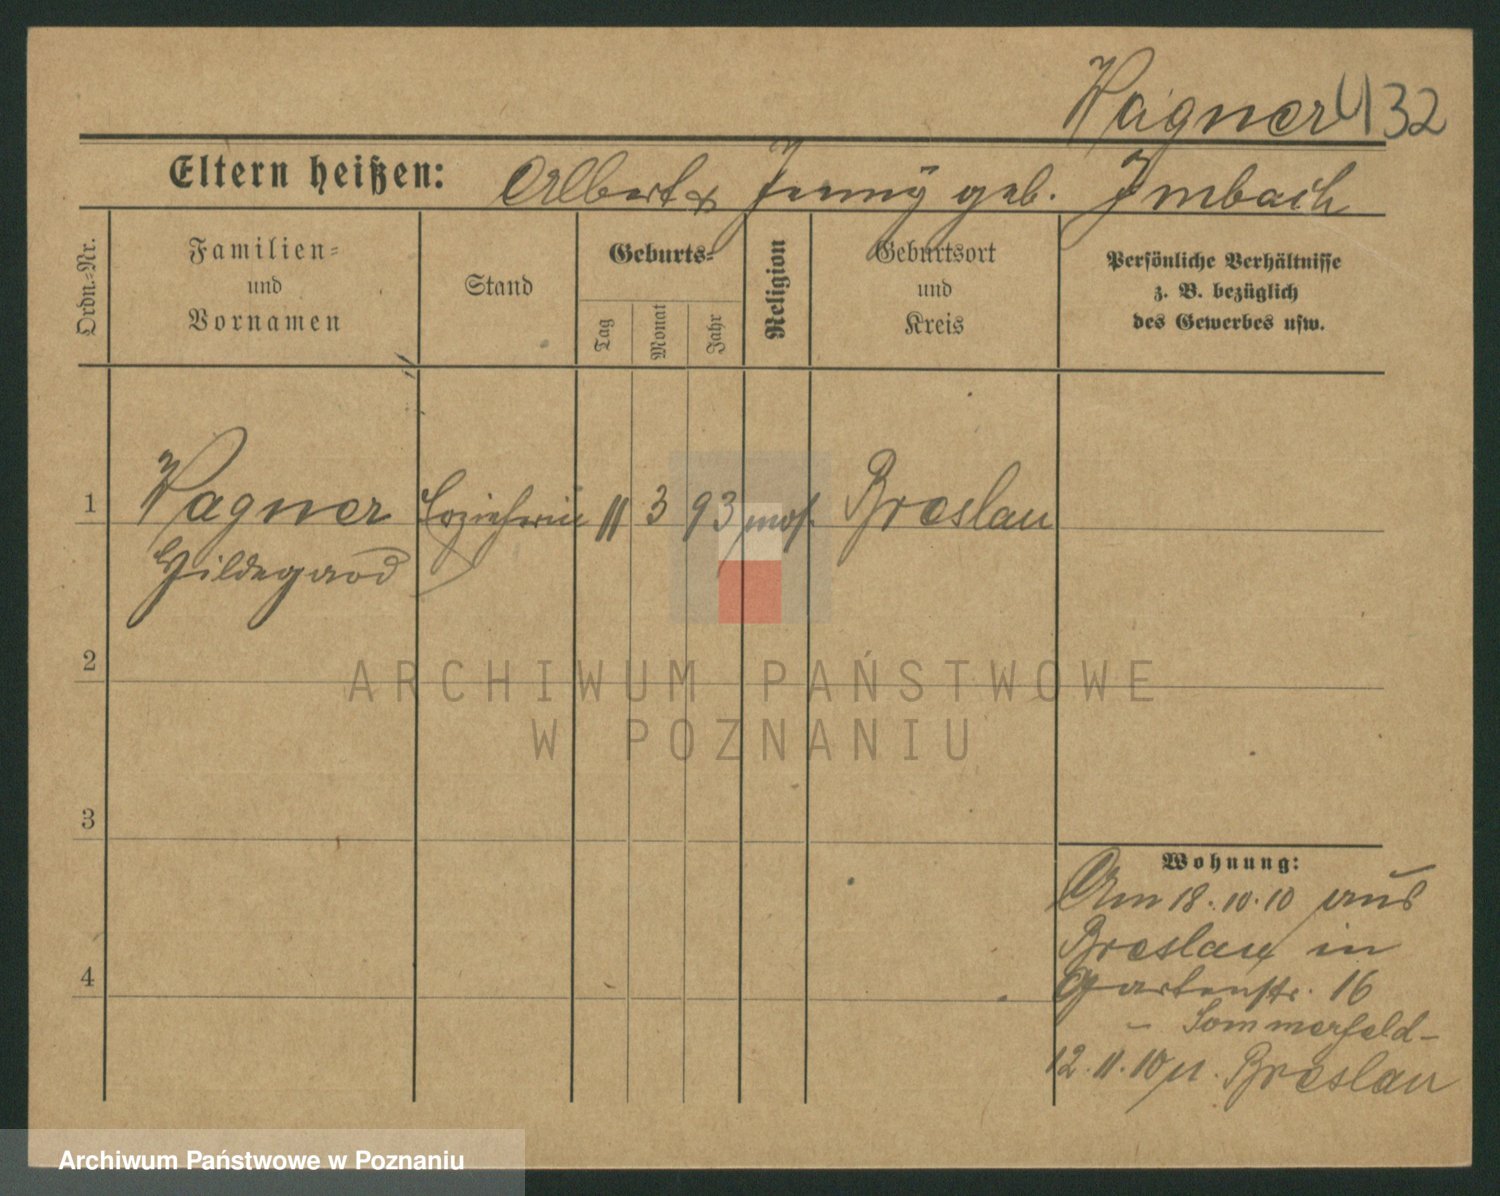 Wagner 432
Eltern heißen: Albert & Jenny geb. Imbach
Ordn.-Nr.
Familien-
und
Vornamen
Stand
Geburts-
Tag
Monat
Jahr
Religion
Geburtsort
und
Kreis
Persönliche Verhältnisse
z. B. bezüglich
des Gewerbes usw.
1 Wagner Erzieherin 11 3 93 mos. Breslau
Hildegard
2
3
4
Wohnung:
Am 18.10.10 aus
Breslau in
Gartenstr. 16
- Sommerfeld -
12.11.10 n. Breslau
ARCHIWUM PAŃSTWOWE
W POZNANIU
Archiwum Państwowe w Poznaniu